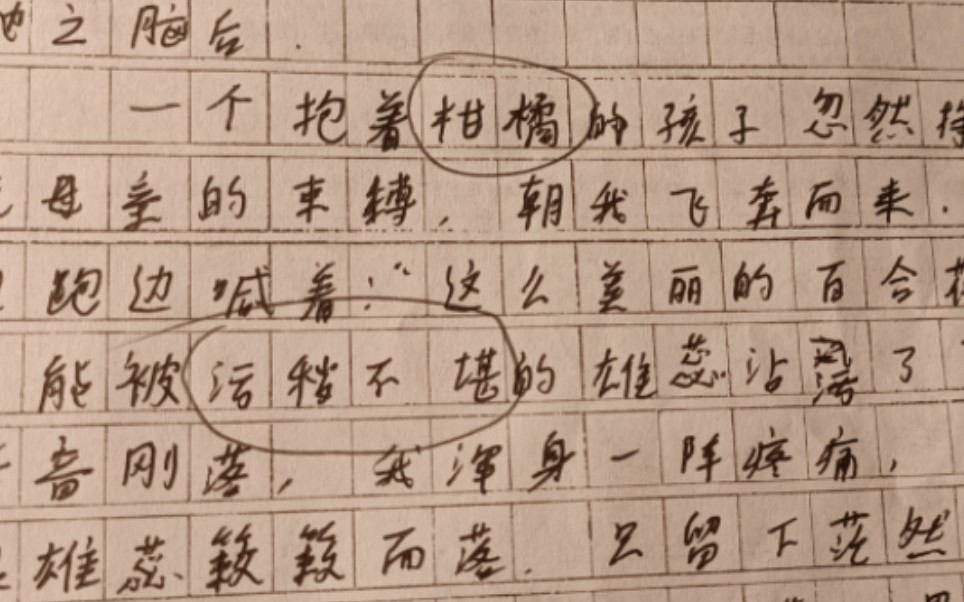 之脑后.
一个抱着柑橘的孩子忽然挣
母亲的束缚,朝我飞奔而来.
跑边喊着:“这么美丽的百合花
能被污秽不堪的雄蕊沾染了
音刚落,我浑身一阵疼痛,
雄蕊簌簌而落.只留下茫然